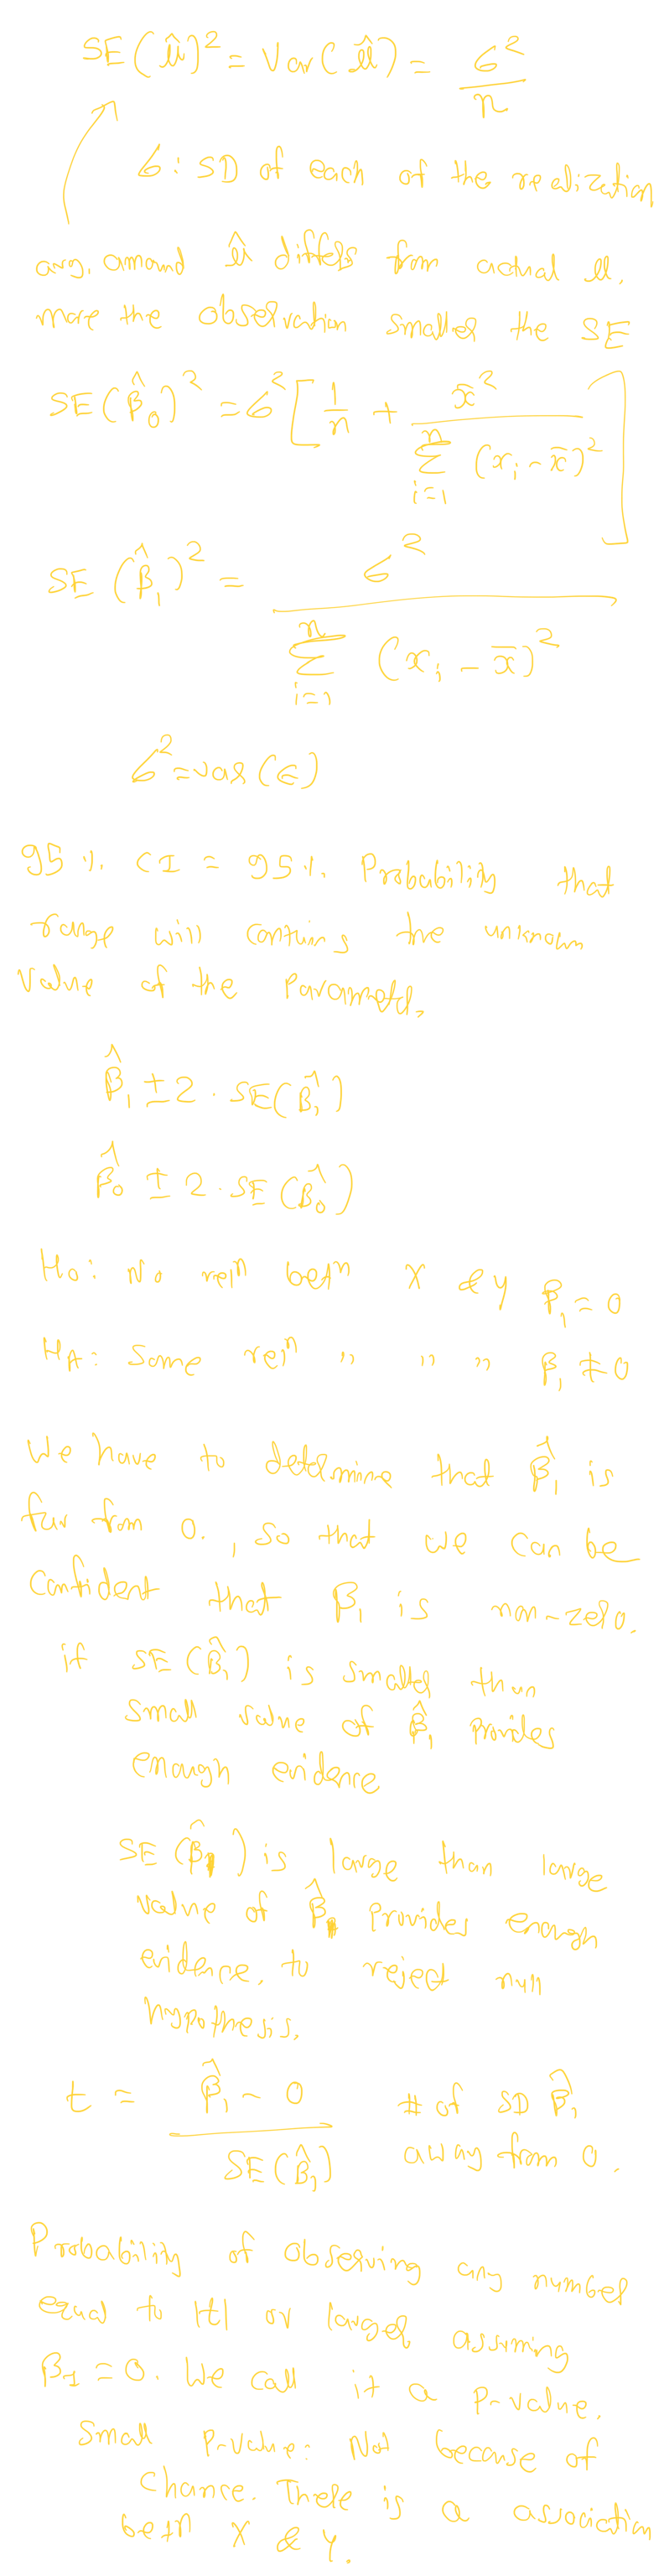 SE(μ̂)² = Var(μ̂) = σ²/n
σ: SD of each of the realization
avg. amound μ̂ differs from actual μ.
more the observation smaller the SE
SE(β̂₀)² = σ² [1/n + x̄² / Σⁿᵢ₌₁ (xᵢ - x̄)²]
SE(β̂₁)² = σ² / Σⁿᵢ₌₁ (xᵢ - x̄)²
σ² = var(ε)
95 % CI = 95 % Probability that
range will contains the unknown
value of the parameter.
β̂₁ ± 2 . SE(β̂₁)
β̂₀ ± 2 . SE(β̂₀)
H₀: No relⁿ betⁿ X & Y β₁ = 0
H_A: Some relⁿ " " " β₁ ≠ 0
We have to determine that β̂₁ is
far from 0. , so that we can be
confident that β₁ is non-zero.
if SE(β̂₁) is smaller than
small value of β̂₁ provides
enough evidence
SE(β̂₁) is large than large
value of β̂₁ provides enough
evidence. to reject null
hypothesis.
t = (β̂₁ - 0) / SE(β̂₁) # of SD β̂₁
away from 0.
Probability of observing any number
equal to |t| or larger assuming
β₁ = 0. We call it a P-value.
Small P-value: Not because of
chance. There is a association
betⁿ X & Y.